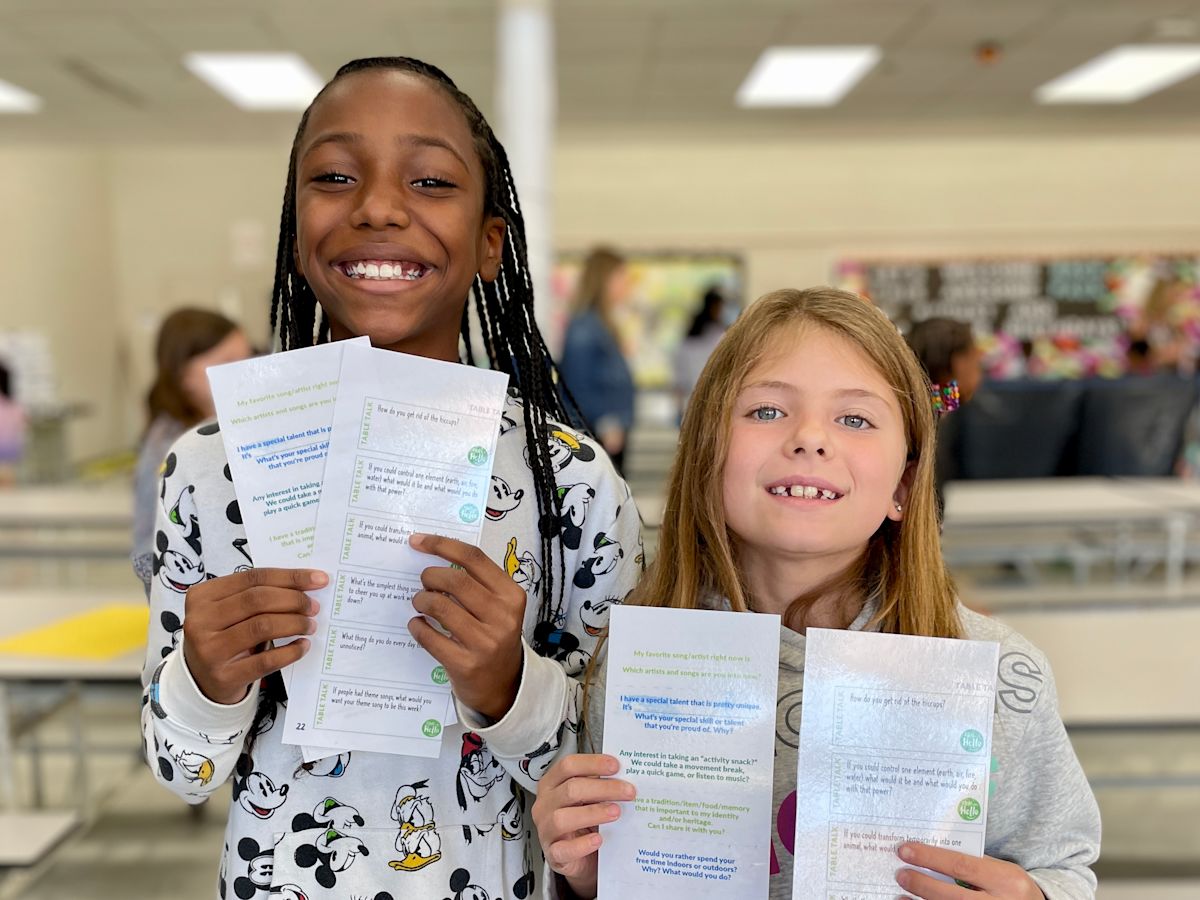 My favorite song/artist right now
Which artists and songs are you i
I have a special talent that is p
It's
What's your special
that you're proud of.
Any interest in taking
We could take a m
play a quick game
I have a tradition
that is import
Can I
TABLE TALK
TABLE TALK
How do you get rid of the hiccups?
Hello
TABLE TALK
If you could control one element (earth, air, fire,
water) what would it be and what would you do
with that power?
Hello
TABLE TALK
If you could transform
animal, what would
TABLE TALK
What's the simplest thing
to cheer you up at work
down?
TABLE TALK
What thing do you do every day th
unnoticed?
Hello
TABLE TALK
If people had theme songs, what would you
want your theme song to be this week?
Hello
22
My favorite song/artist right now is
Which artists and songs are you into now?
I have a special talent that is pretty unique.
It's
What's your special skill or talent
that you're proud of. Why?
Any interest in taking an "activity snack?"
We could take a movement break,
play a quick game, or listen to music?
ave a tradition/item/food/memory
that is important to my identity
and/or heritage.
Can I share it with you?
Would you rather spend your
free time indoors or outdoors?
Why? What would you do?
TABLE TALK
TABLE TALK
How do you get rid of the hiccups?
Hello
TABLE TALK
If you could control one element (earth, air, fire,
water) what would it be and what would you do
with that power?
Hello
TABLE TALK
If you could transform temporarily into one
animal, what would
S